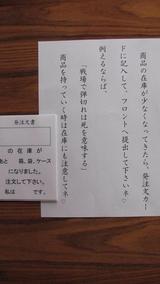 商品の在庫が少なくなってきたら、発注文カー
ドに記入して、フロントへ提出して下さいネ♡
例えるならば、
「戦場で弾切れは死を意味する」
商品を持っていく時は在庫にも注意してネ♡
発注文書
の在庫が
あと 箱、袋、ケース
になりました。
注文して下さい。
私は です。